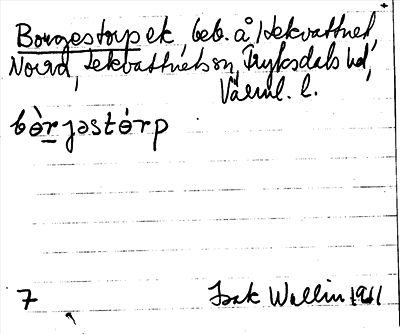 Borgestorp ek, beb. å Lekvattnet,
Norra, Lekvattnets sn, Fryksdals hd,
Värml. l.
bèrjəstórp
7
Isak Wallin 1911